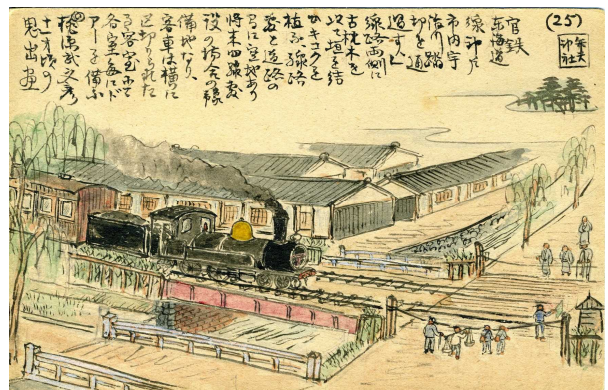 (25)
官鉄
東海道
線神戸
市内宇
治川踏
切を通
過す
線路両側に
古枕木を
以て垣を結
植ゑ線路
敷と道路の
に空地あり
将来四線敷
設の場合の豫
備地なり
客車は横に
区切られた
る客室にて
各室毎にド
アーを備ふ
武之彦
十一才頃の
思出画